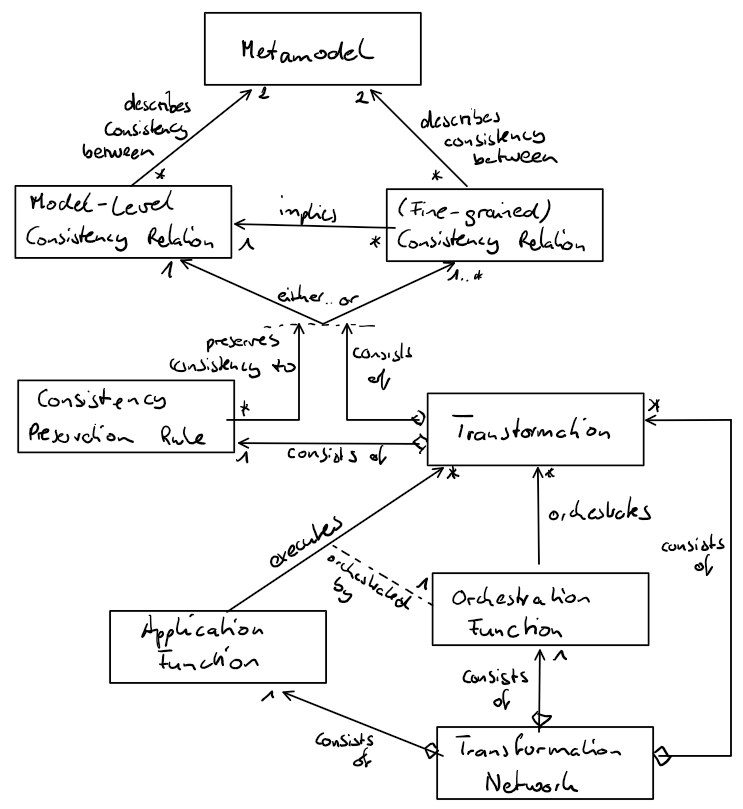 Metamodel
describes
consistency
between
2
2
describes
consistency
between
*
*
Model-Level
Consistency Relation
implies
1
*
(Fine-grained)
Consistency Relation
1
1..*
either..or
preserves
consistency to
consists
of
Consistency
Preservation Rule
*
1
consists of
Transformation
*
*
*
executes
orchestrates
orchestrated
by
1
consists
of
Application
Function
Orchestration
Function
1
1
consists
of
consists
of
Transformation
Network